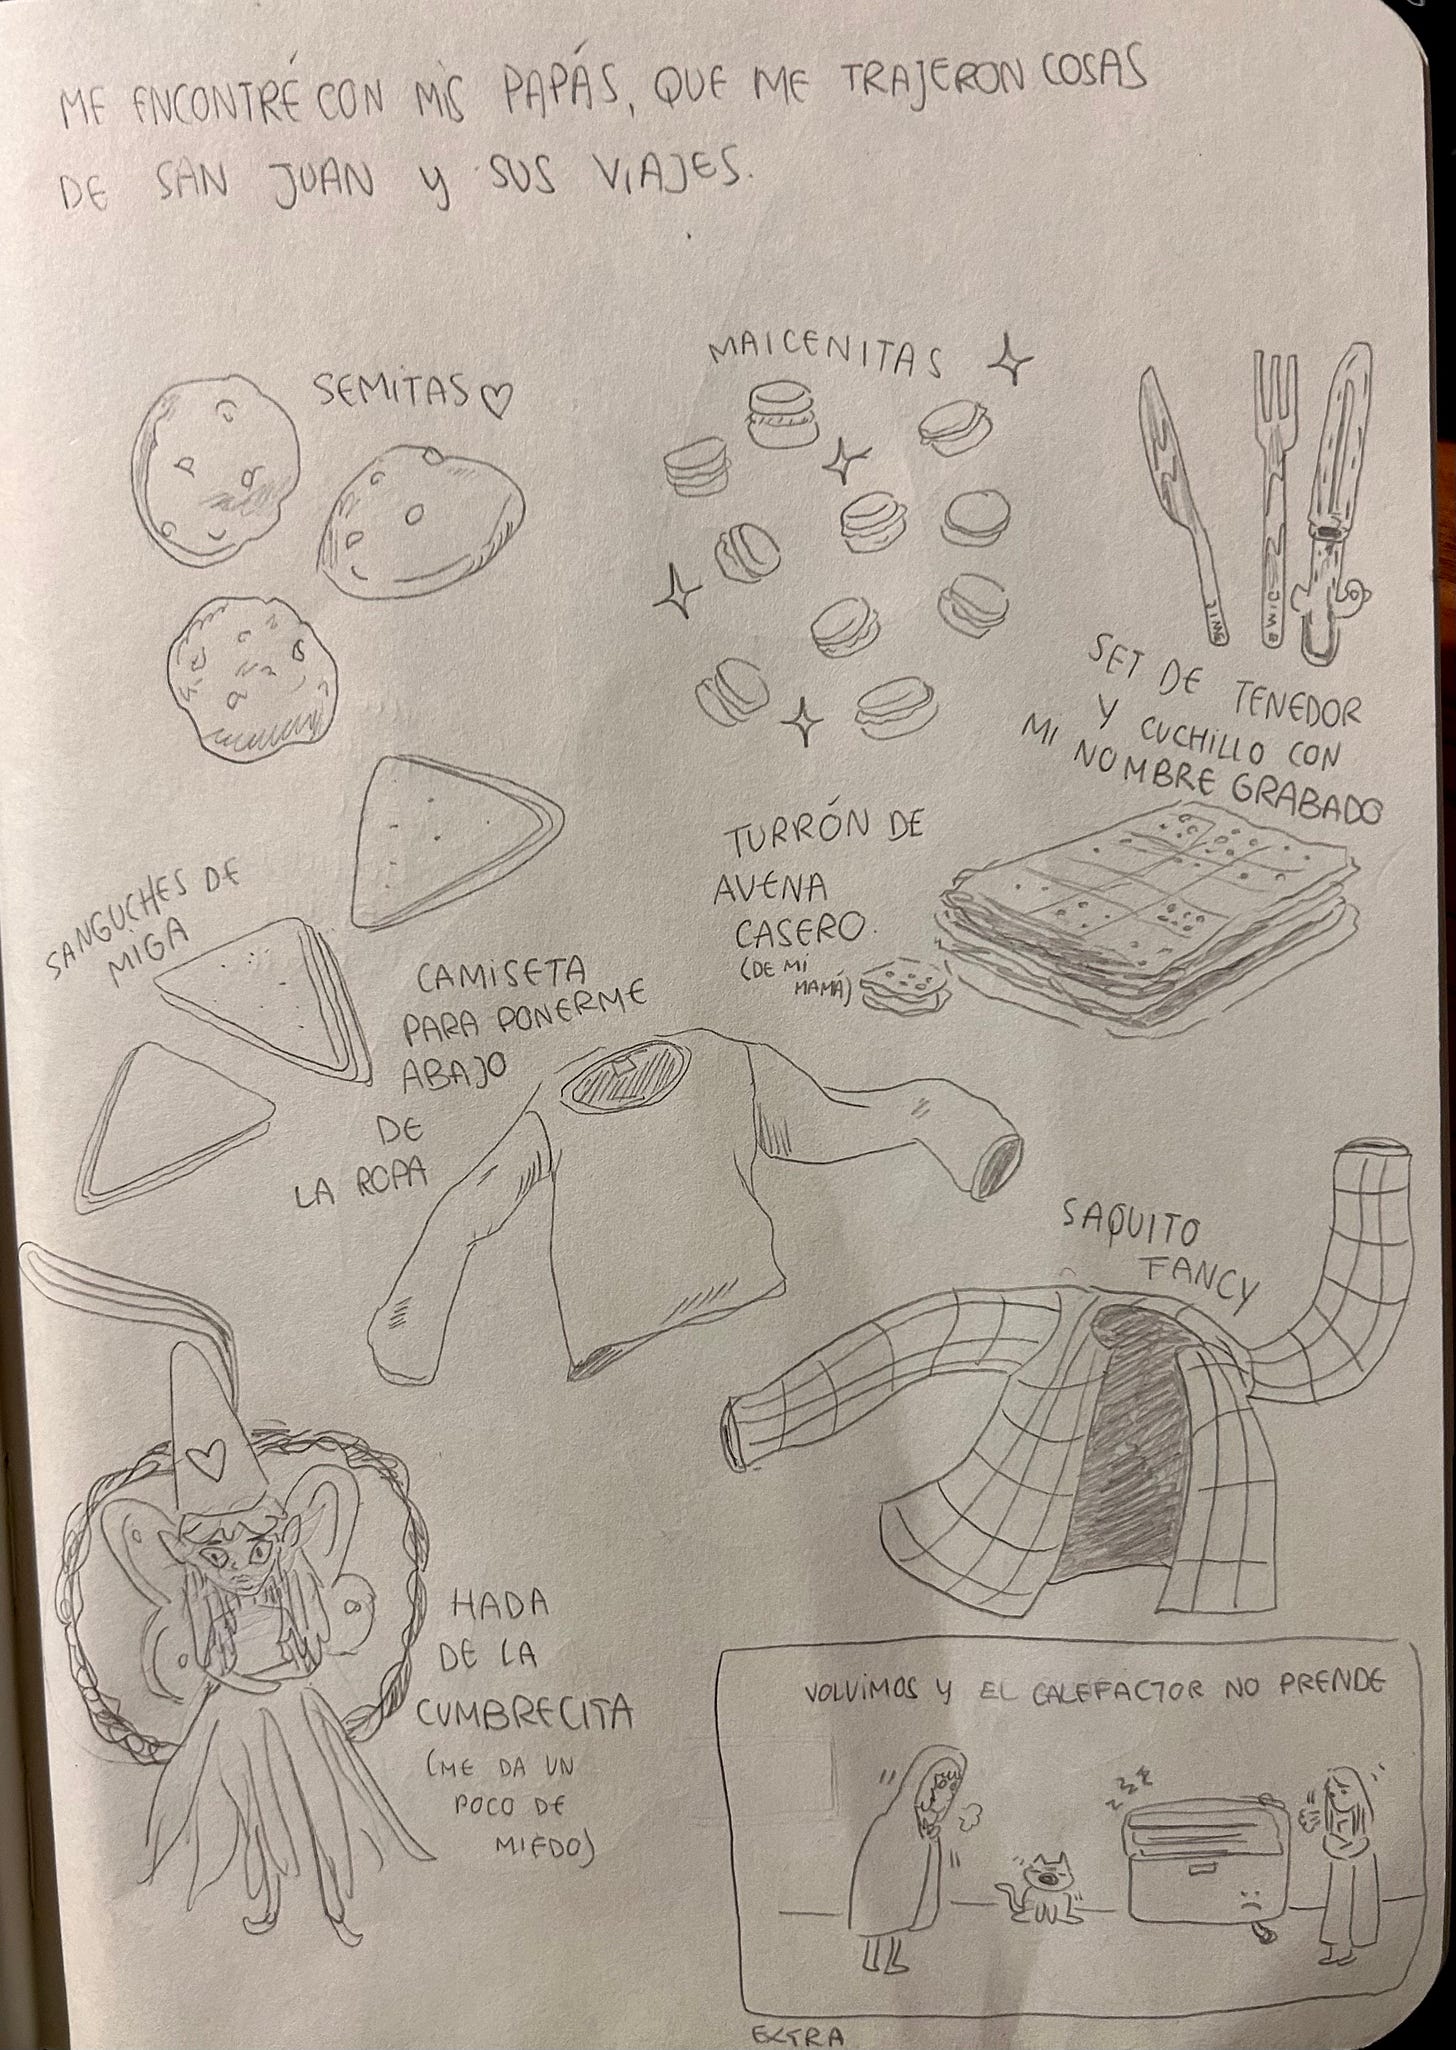 ME ENCONTRÉ CON MIS PAPÁS, QUE ME TRAJERON COSAS
DE SAN JUAN Y SUS VIAJES.
SEMITAS
MAICENITAS
SET DE TENEDOR
Y CUCHILLO CON
MI NOMBRE GRABADO
SANGUCHES DE
MIGA
TURRÓN DE
AVENA
CASERO.
(DE MI
MAMÁ)
CAMISETA
PARA PONERME
ABAJO
DE
LA ROPA
SAQUITO
FANCY
HADA
DE LA
CUMBRECITA
(ME DA UN
POCO DE
MIEDO)
VOLVIMOS Y EL CALEFACTOR NO PRENDE
ZZZ
EXTRA